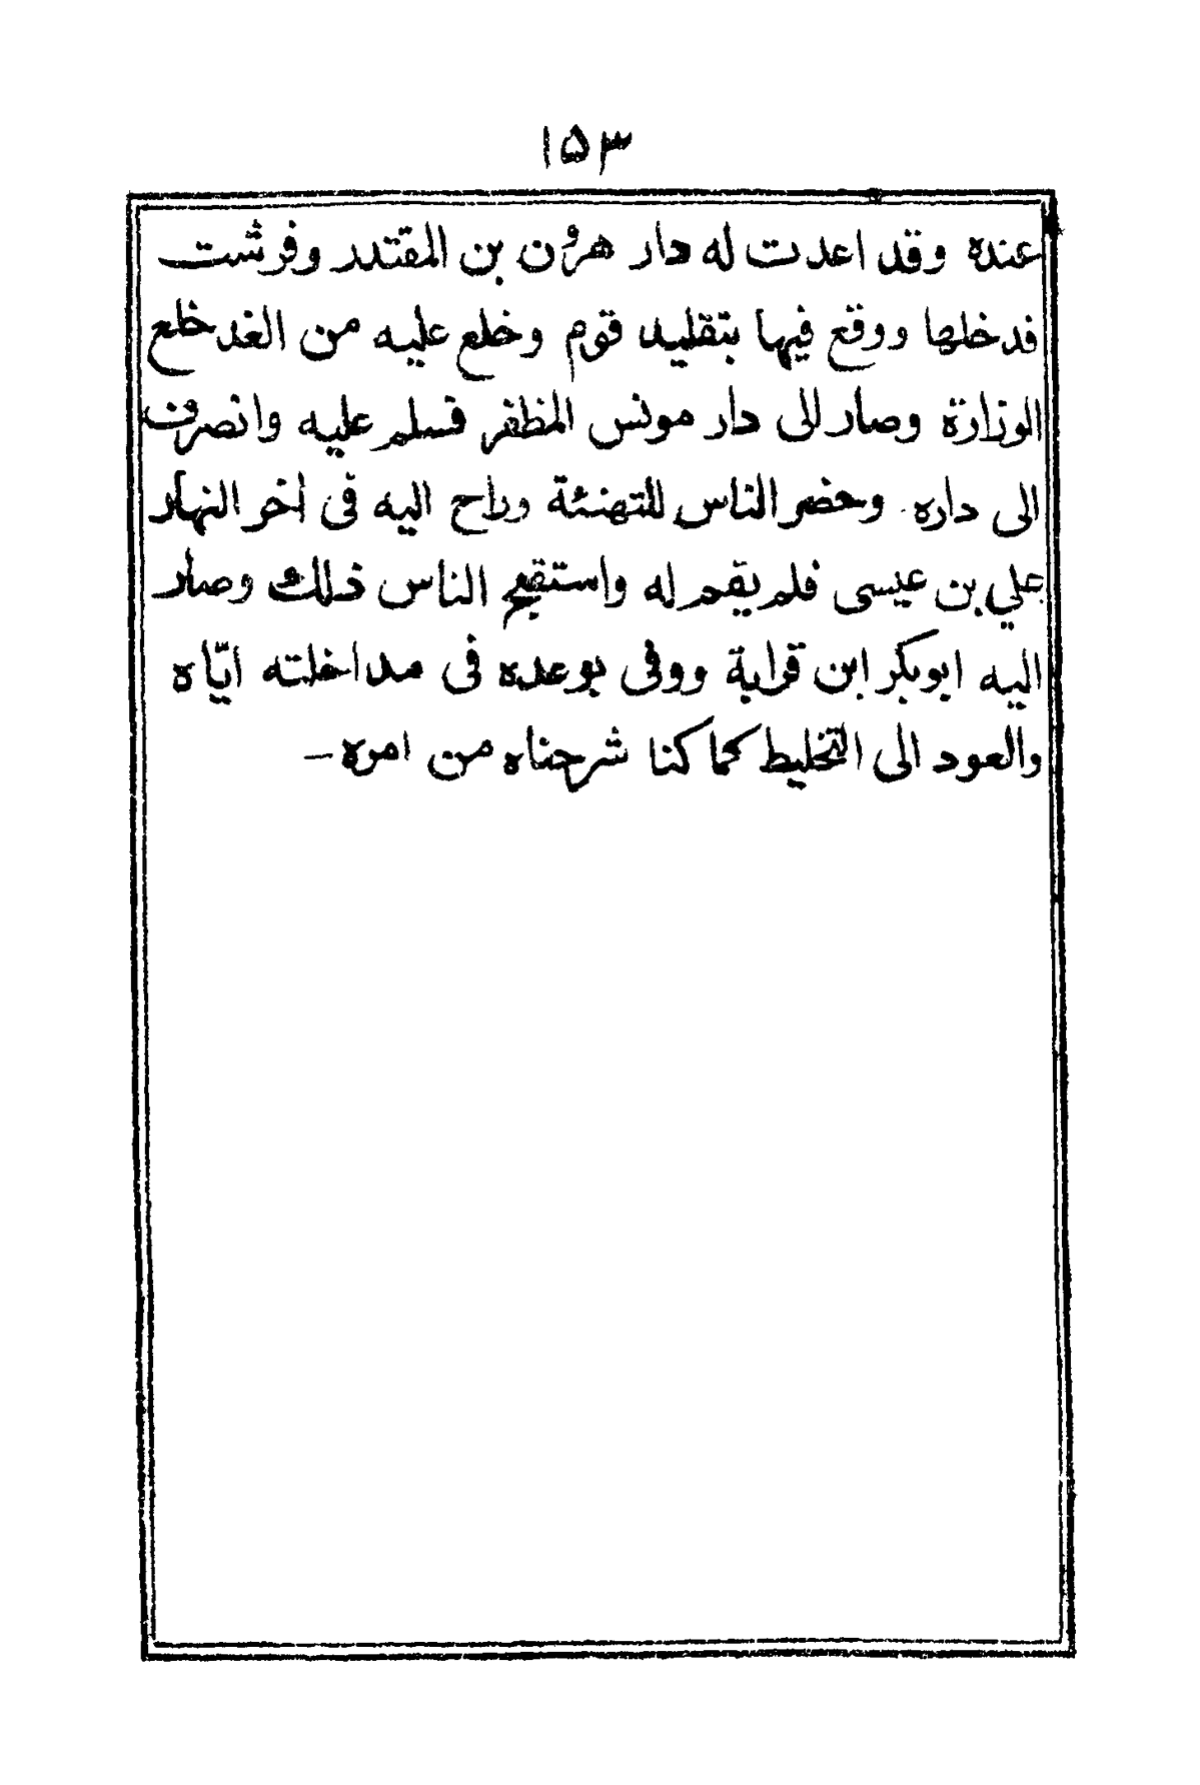 ١٥٣
عنده وقد اعدت له دار هرون بن المقتدر وفرشت
فدخلها ووقع فيها بتقليد قوم وخلع عليه من الغد خلع
الوزارة وصار الى دار مونس المظفر فسلم عليه وانصرف
الى داره. وحضر الناس للتهنئة وراح اليه فى أخر النهار
علي بن عيسى فلم يقم له واستقبح الناس ذلك وصار
اليه ابو بكر ابن قرابة ووفى بوعده فى مداخلته ايّاه
والعود الى التخليط كما كنا شرحناه من امره —